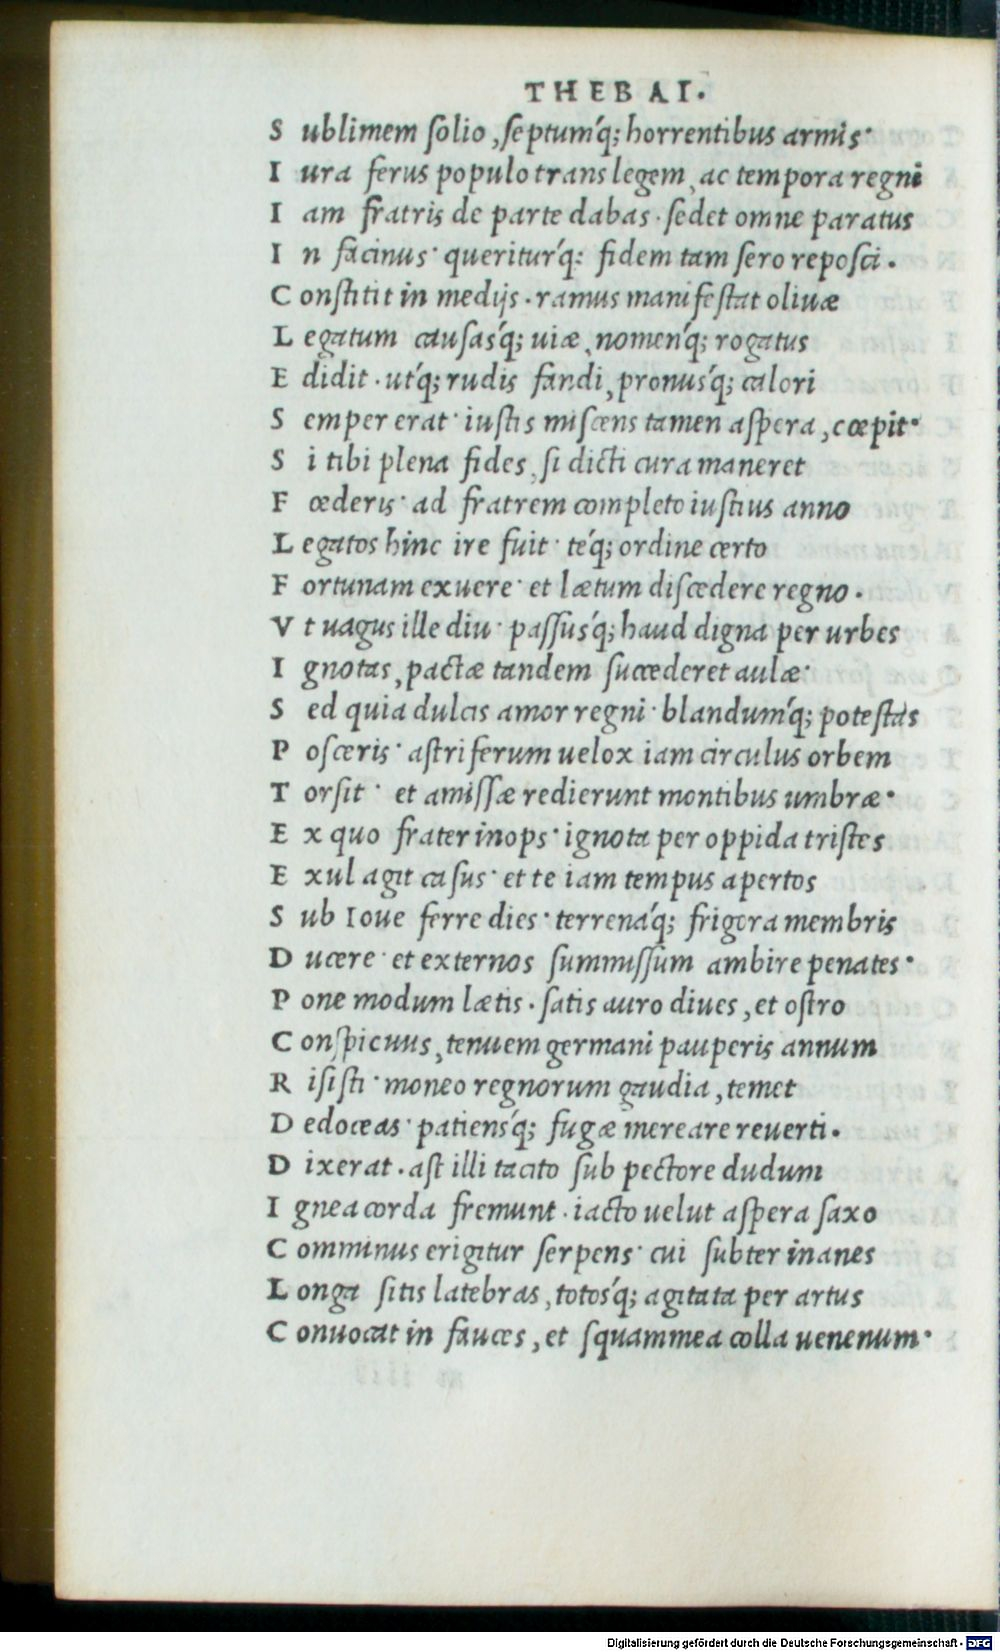 THEBAI.
S ublimem ſolio, ſeptumq́; horrentibus armis·
I ura ferus populo trans legem, ac tempora regni
I am fratris de parte dabas· ſedet omne paratus
I n facinus· queriturq́; fidem tam ſero repoſci.
C onſtitit in medijs· ramus manifeſtat oliuæ
L egatum cauſasq́; uiæ, nomenq́; rogatus
E didit· utq́; rudis fandi, pronusq́; calori
S emper erat· iuſtis miſcens tamen aſpera, cœpit·
S i tibi plena fides, ſi dicti cura maneret
F œderis· ad fratrem completo iuſtius anno
L egatos hinc ire fuit· teq́; ordine certo
F ortunam exuere· et lætum diſcedere regno.
V t uagus ille diu· paſſusq́; haud digna per urbes
I gnotas, pactæ tandem ſuccederet aulæ·
S ed quia dulcis amor regni· blandumq́; poteſtas
P oſceris· aſtriferum uelox iam circulus orbem
T orſit· et amiſſæ redierunt montibus umbræ·
E x quo frater inops· ignota per oppida triſtes
E xul agit caſus· et te iam tempus apertos
S ub Ioue ferre dies· terrenaq́; frigora membris
D ucere· et externos ſummiſſum ambire penates·
P one modum lætis· ſatis auro diues, et oſtro
C onſpicuus, tenuem germani pauperis annum
R iſiſti· moneo regnorum gaudia, temet
D edoceas· patiensq́; fugæ mereare reuerti.
D ixerat· aſt illi tacito ſub pectore dudum
I gnea corda fremunt· iacto uelut aſpera ſaxo
C omminus erigitur ſerpens· cui ſubter inanes
L onga ſitis latebras, totosq́; agitata per artus
C onuocat in fauces, et ſquammea colla uenenum·
Digitalisierung gefördert durch die Deutsche Forschungsgemeinschaft - DFG